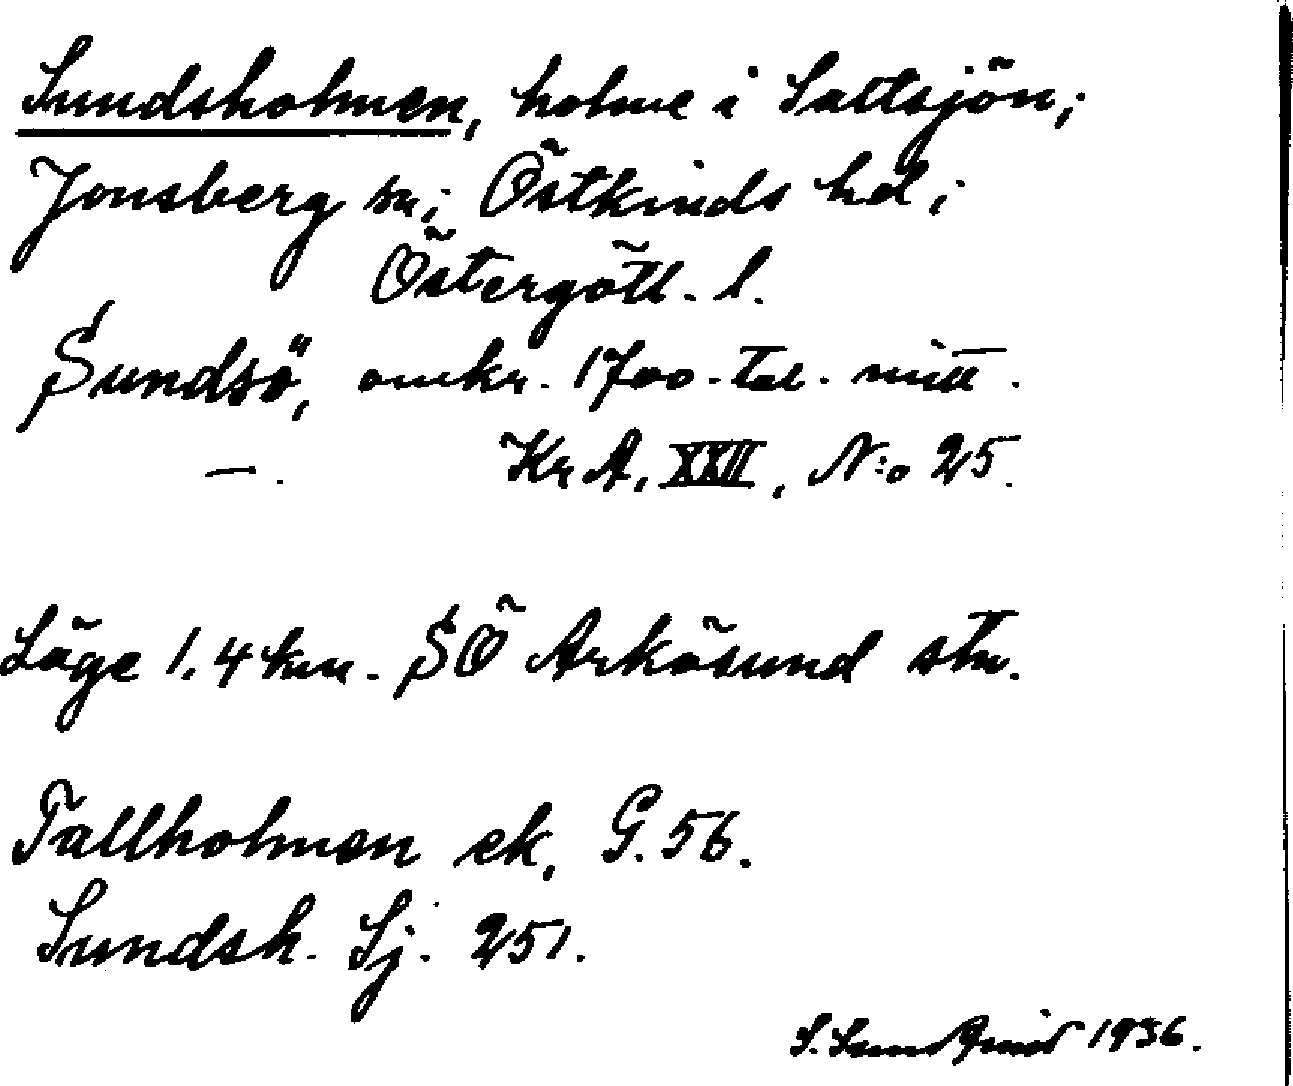 Sundsholmen, holme i Saltsjön;
Jonsberg sn; Östkinds hd;
Östergötl. l.
Sundsö, omkr. 1700-tal. mitt.
— . Kr A, XXII, N:o 25.
Läge 1.4 km. SÖ Arkösund stn.
Tallholmen ek, G. 56.
Sundsh. Sj. 251.
S. Sundqvist 1936.